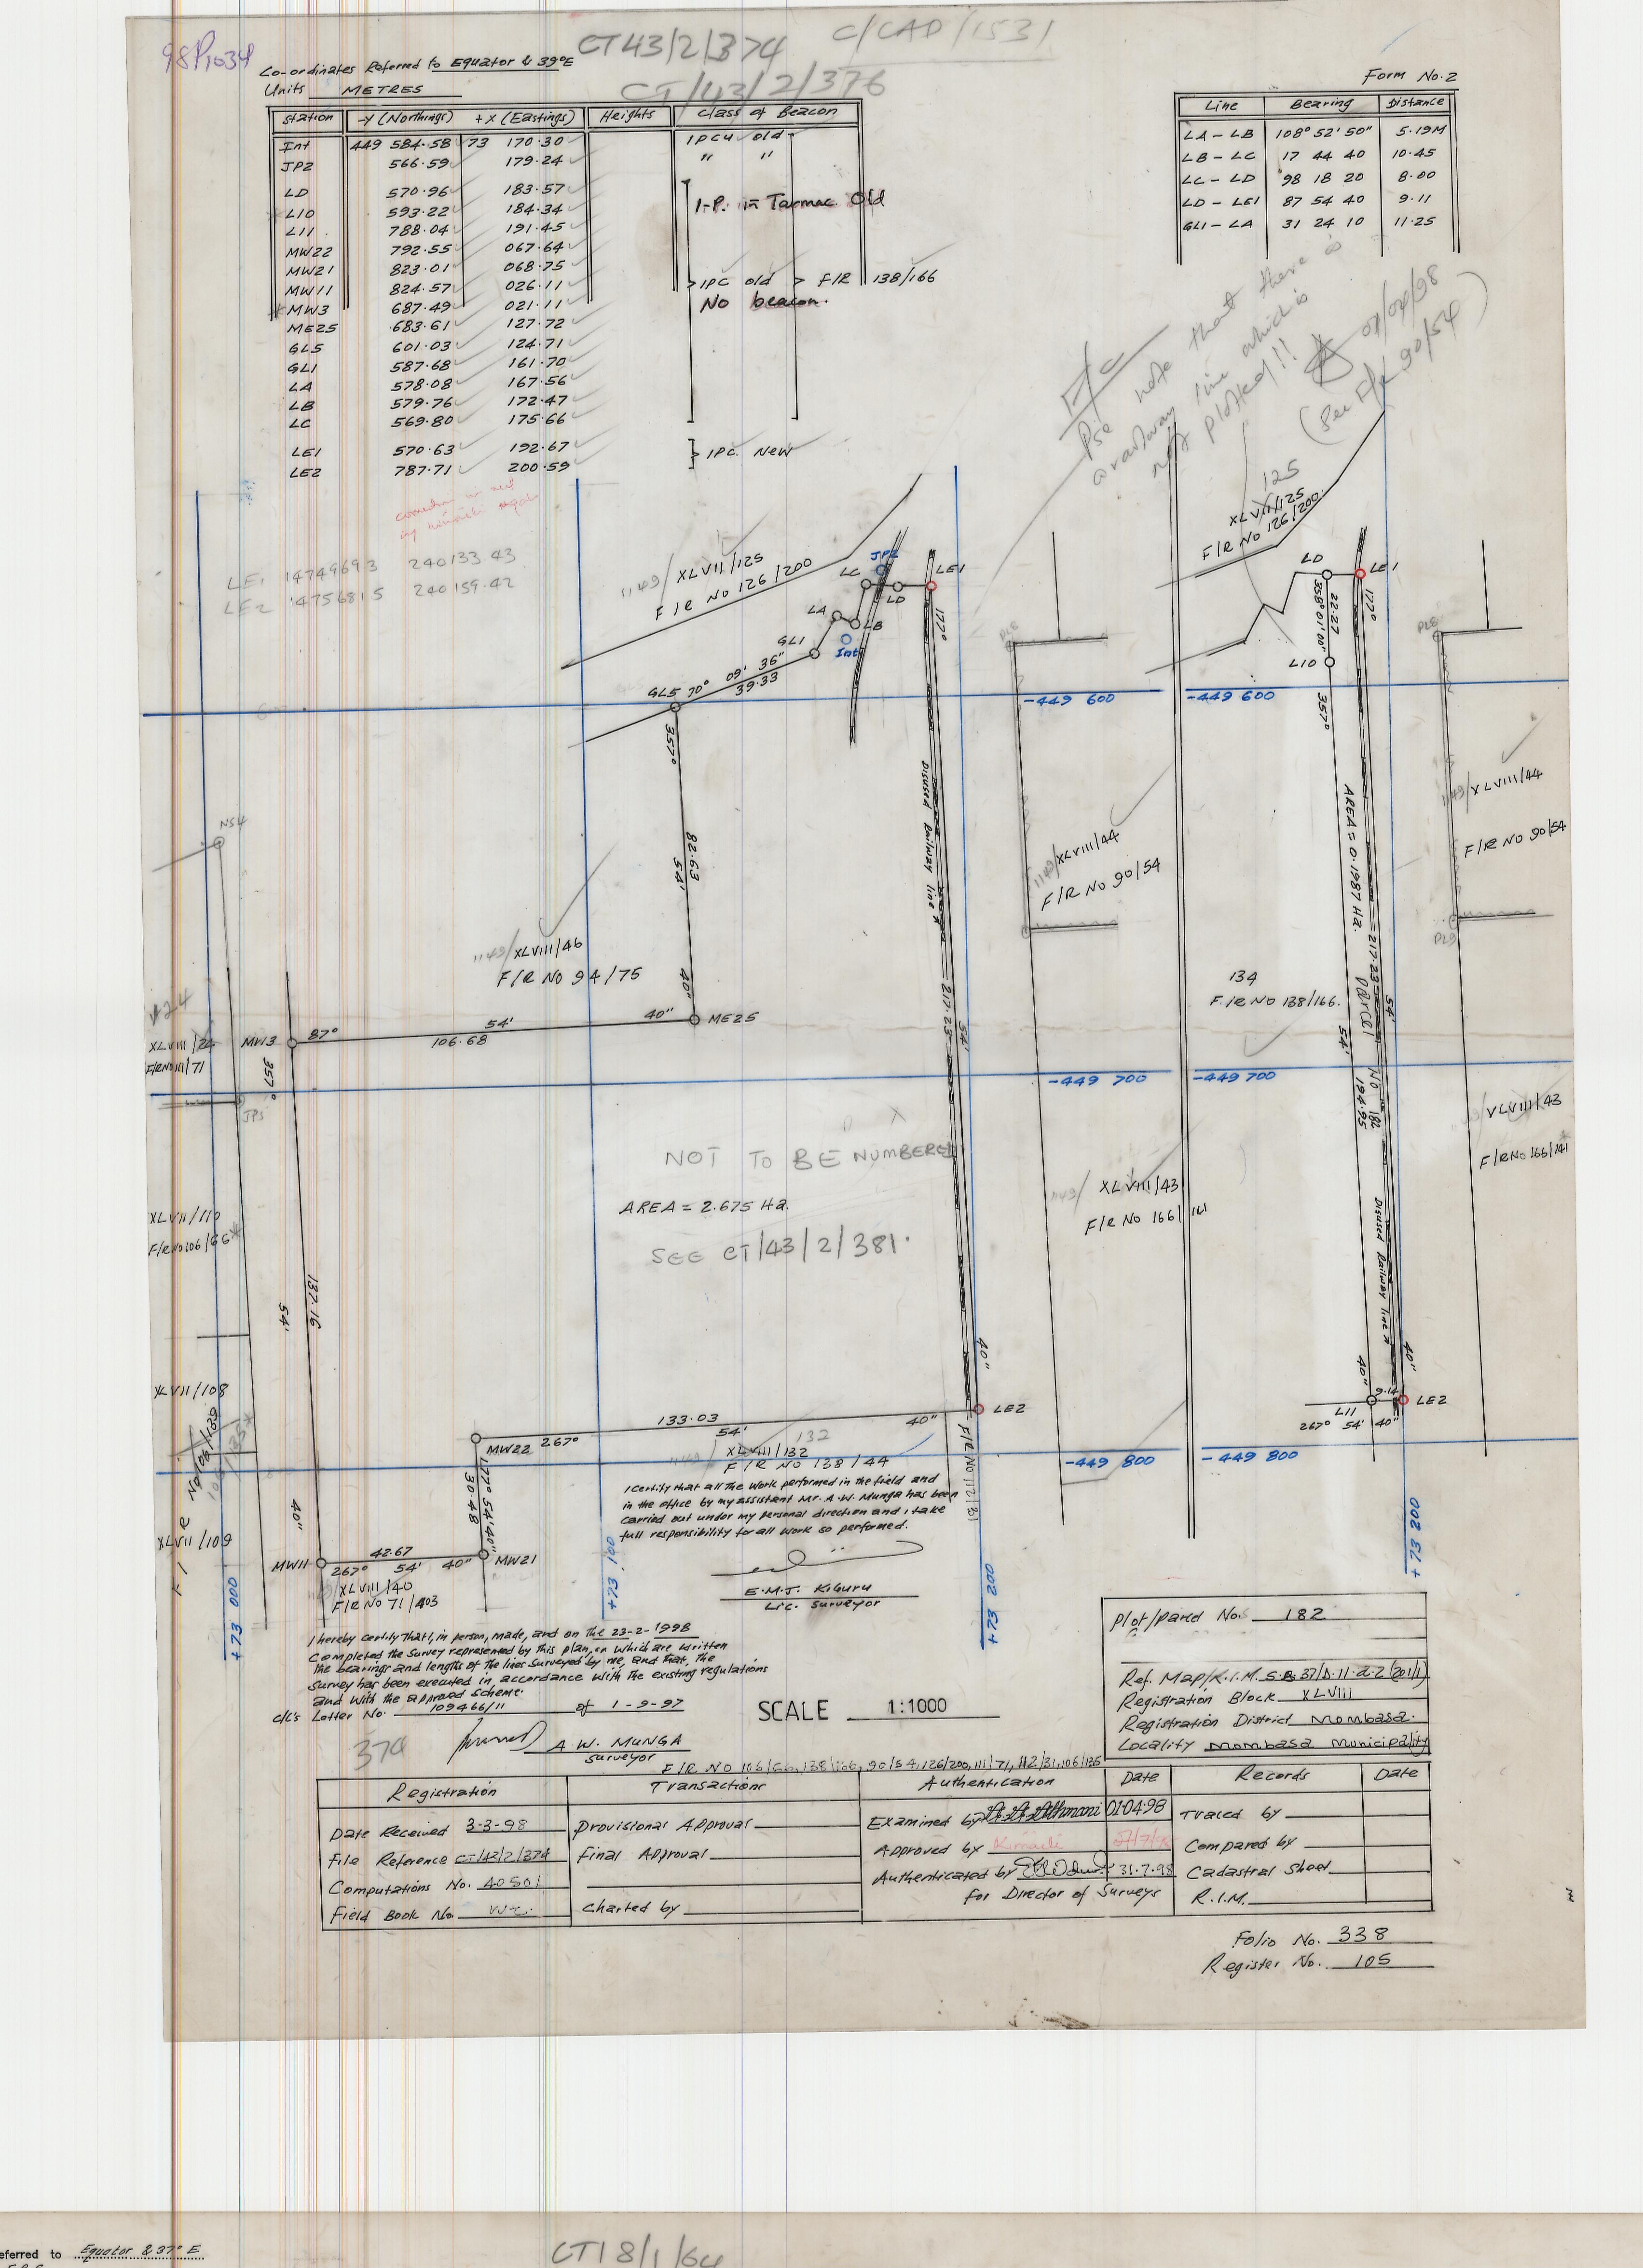 98P1034
CT43/2/374
C/CAD/1531
CT/43/2/376
Co-ordinates Referred to Equator & 39°E
Units METRES
Form No. 2
Station -Y (Northings) +X (Eastings) Heights Class of Beacon
Int 449 584.58 73 170.30 IPCU old
JP2 566.59 179.24 " "
LD 570.96 183.57
L10 593.22 184.34 I.P. in Tarmac Old
L11 788.04 191.45
MW22 792.55 067.64
MW21 823.01 068.75
MW11 824.57 026.11 IPC old F/R 138/166
MW3 687.49 021.11 No beacon.
ME25 683.61 127.72
GL5 601.03 124.71
GL1 587.68 161.70
LA 578.08 167.56
LB 579.76 172.47
LC 569.80 175.66
LE1 570.63 192.67 } IPC New
LE2 787.71 200.59
Line Bearing Distance
LA - LB 108° 52' 50" 5.19M
LB - LC 17 44 40 10.45
LC - LD 98 18 20 8.00
LD - LE1 87 54 40 9.11
GL1 - LA 31 24 10 11.25
F/C
Pse note that there is
a railway line which is
not plotted!!
07/04/98
(See F/R 90/54)
LE1 14749693 240133.43
LE2 14756815 240159.42
1149/ XLVII/125
F/R No 126/200
125
XLVII/125
F/R No 126/200
JP2
LC
LD
LE1
LA
LB
GL1
Int
177°
GL5 70° 09' 36"
39.33
LD
LE1
22.27
358° 01' 00"
177°
L10
357°
P28
P28
-449 600
-449 600
357°
82.63
54'
40"
Disused Railway line
217.23
54'
NS4
1149/XLVIII/44
F/R No 90/54
1149/XLVIII/44
F/R No 90/54
P29
AREA = 0.1987 Ha.
217.23
54'
Parcel No 182
54'
194.95
1149/ XLVIII/46
F/R No 94/75
134
F/R No 138/166.
XLVIII/24
F/R No 111/71
MW3 87° 54' 40" ME25
106.68
357°
JP3
-449 700
-449 700
NOT TO BE NUMBERED
AREA = 2.675 Ha.
SEE CT/43/2/381.
1149/ XLVIII/43
F/R No 166/141
VLVIII/43
F/R No 166/141
XLVII/110
F/R No 106/66*
137.16
54'
Disused Railway line
40"
40"
40"
XLVII/108
133.03
54'
40" LE2
MW22 267°
132
XLVIII/132
F/R No 138/44
F/R No 112/31
9.14
L11 LE2
267° 54' 40"
177° 54' 40"
30.48
-449 800
-449 800
I certify that all the work performed in the field and
in the office by my assistant Mr. A.W. Munga has been
carried out under my personal direction and I take
full responsibility for all work so performed.
E.M.J. Kiguru
Lic. Surveyor
F/R No 106/135
XLVII/109
40"
MW11 42.67 MW21
267° 54' 40"
XLVIII/40
F/R No 71/403
+73 000
+73 100
+73 200
+73 200
I hereby certify that I, in person, made, and on the 23-2-1998
completed the survey represented by this plan, on which are written
the bearings and lengths of the lines surveyed by me, and that, the
survey has been executed in accordance with the existing regulations
and with the approved scheme.
c/l's Letter No. 109466/11 of 1-9-97
374
A W. MUNGA
Surveyor
SCALE 1:1000
Plot/parcel No. 182
Ref. Map/R.I.M. S.B. 37/D.11.d.2 (201/1)
Registration Block XLVIII
Registration District Mombasa.
Locality Mombasa Municipality
F/R No 106/66, 138/166, 90/54, 126/200, 111/71, 112/31, 106/135
Registration Transactions Authentication Date Records Date
Date Received 3-3-98 Provisional Approval Examined by 01.04.98 Traced by
File Reference CT/43/2/374 Final Approval Approved by Compared by
Computations No. 40501 Authenticated by 31.7.98 Cadastral Sheet
Field Book No. W.C. Charted by for Director of Surveys R.I.M.
Folio No. 338
Register No. 105
eferred to Equator & 37° E
CT18/1/64